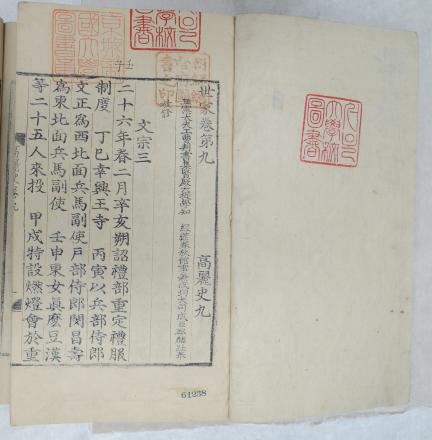 世家卷第九　高麗史九
正憲大夫工曹判書集賢殿大提學知　經筵春秋館事兼成均大司成臣鄭麟趾奉
教修
文宗三
壬子
二十六年春二月辛亥朔詔禮部重定禮服
制度　丁巳幸興王寺　丙寅以兵部侍郎
文正爲西北面兵馬副使戶部侍郎閔昌壽
爲東北面兵馬副使　壬申東女眞麽豆漢
等二十五人來投　甲戌特設燃燈會於重
61238
京城帝
國大學
圖書章
大學校
圖書